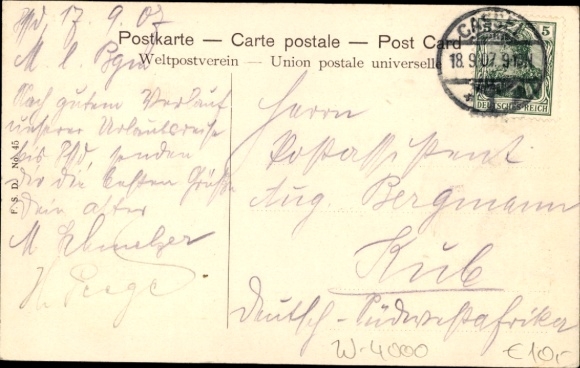 17.9.07
M. l. Bgm
Nach gutem Verlauf
unserer Urlaubsreise
bis senden
dir die besten Grüße
dein alter
M
H.
Postkarte – Carte postale – Post Card
Weltpostverein – Union postale universelle
CASSEL
18.9.07. 9-10N
5
DEUTSCHES REICH
F. S. D. No. 45
Herrn
Postassistent
Aug. Bergmann
Kub
Deutsch-Südwestafrika
W-4000
€10,-